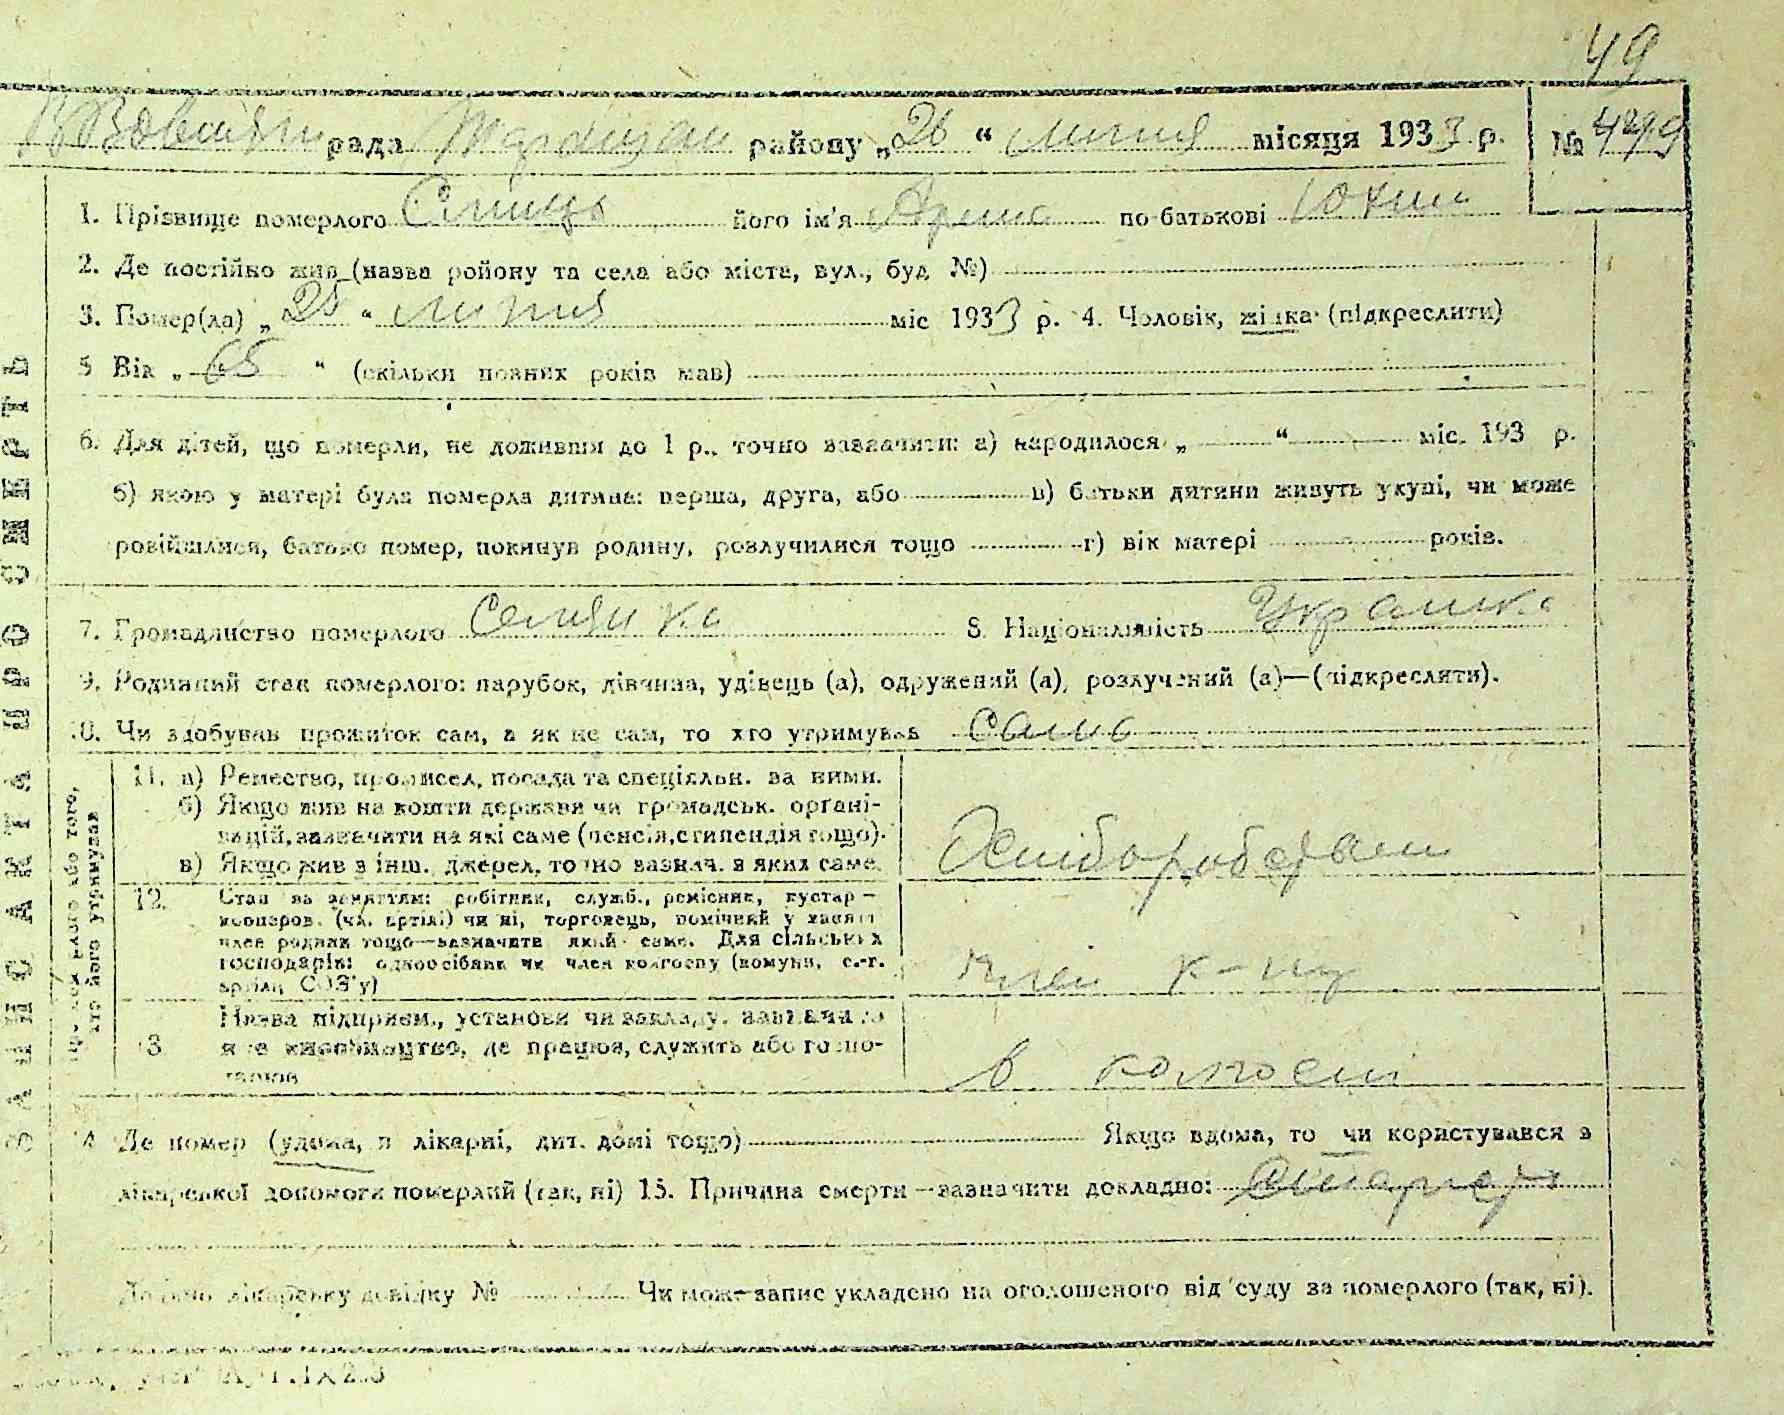 49
рада району „26“ липня місяця 1933 р. №
1. Прізвище померлого його ім'я по-батькові Юхим
2. Де постійно жив (назва ройону та села або міста, вул., буд. №)
3. Помер(ла) „25“ липня міс 1933 р. 4. Чоловік, жінка (підкреслити)
5 Вік „65“ (скільки повних років мав)
6. Для дітей, що померли, не доживши до 1 р., точно зазначити: а) народилося „ “ міс. 193 р.
б) якою у матері була померла дитина: перша, друга, або в) батьки дитини живуть укупі, чи може
розійшлися, батько помер, покинув родину, розлучилися тощо г) вік матері років.
7. Громадянство померлого Селянка 8. Національність Українка
9. Родинний стан померлого: парубок, дівчина, удівець (а), одружений (а), розлучений (а)—(підкреслити).
10. Чи здобував прожиток сам, а як не сам, то хто утримував Сама
ЗАПИСКА ПРО СМЕРТЬ
11. а) Ремество, промисел, посада та спеціяльн. за ними.
б) Якщо жив на кошти держави чи громадськ. органі-
зацій, зазначити на які саме (пенсія, стипендія тощо).
в) Якщо жив з інш. джерел, точно зазнач. з яких саме.
Хліборобство
12. Стан за заняттям: робітник, служб., ремісник, кустар—
кооперов. (чл. артілі) чи ні, торговець, помічний у занятт
член родини тощо—зазначити який саме. Для сільських
господарів: одноосібник чи член колгоспу (комуни, с.-г.
артілі, СОЗ'у)
член к-пу
13 Назва підприєм., установи чи закладу, зазначити
яке виробництво, де працював, служить або госпо-
в колгоспі
14 Де помер (удома, в лікарні, дит. домі тощо) Якщо вдома, то чи користувався з
лікарської допомоги померлий (так, ні) 15. Причина смерти—зазначити докладно:
Додано лікарську довідку № Чи може запис укладено на оголошеного від суду за померлого (так, ні).